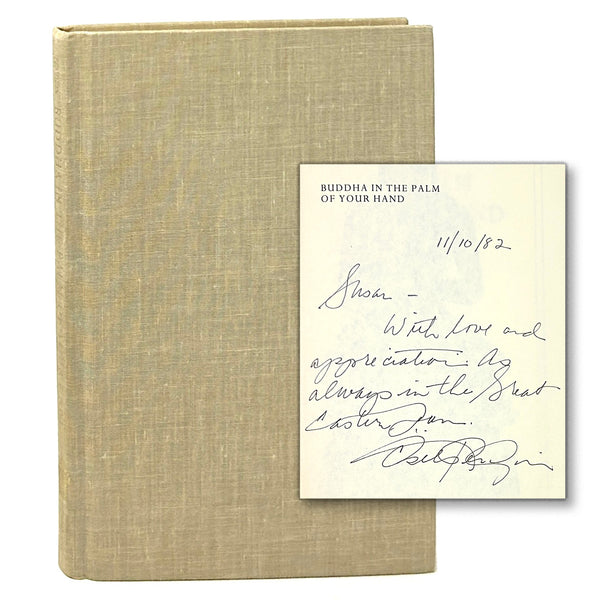 BUDDHA
BUDDHA IN THE PALM
OF YOUR HAND
11/10/82
Susan –
With love and
appreciation. As
always in the Great
Eastern Sun.
Ösel Tendzin